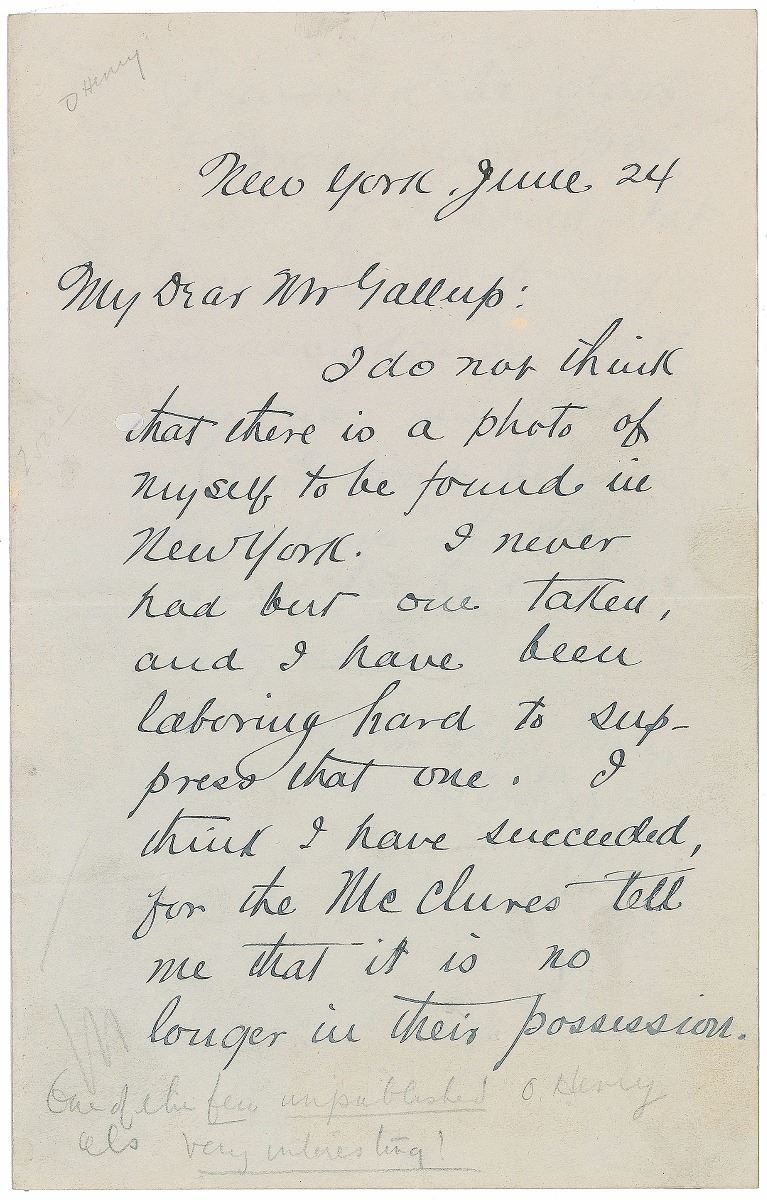 O Henry
New York. June 24
My Dear Mr Gallup:
I do not think
that there is a photo of
myself to be found in
New York. I never
had but one taken,
and I have been
laboring hard to sup-
press that one. I
think I have succeeded,
for the McClures tell
me that it is no
longer in their possession.
One of the few unpublished O. Henry
als very interesting!